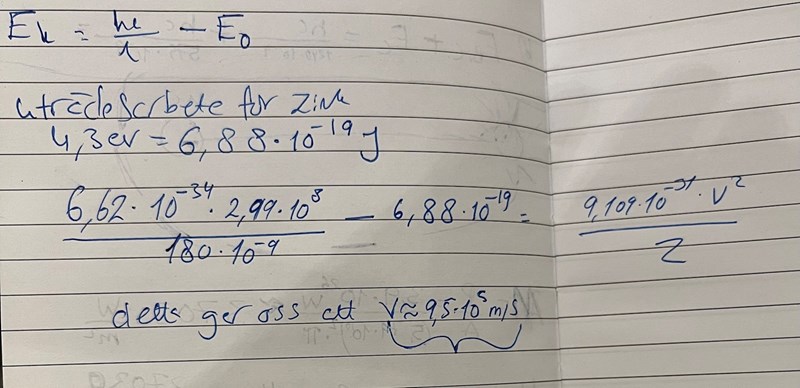 Ek = hc/λ − E₀
Uträdesarbete för zink
4,3 ev = 6,88·10⁻¹⁹ J
(6,62·10⁻³⁴ · 2,99·10⁸)/(180·10⁻⁹) − 6,88·10⁻¹⁹ = (9,109·10⁻³¹ · v²)/2
detta ger oss att v≈9,5·10⁵ m/s